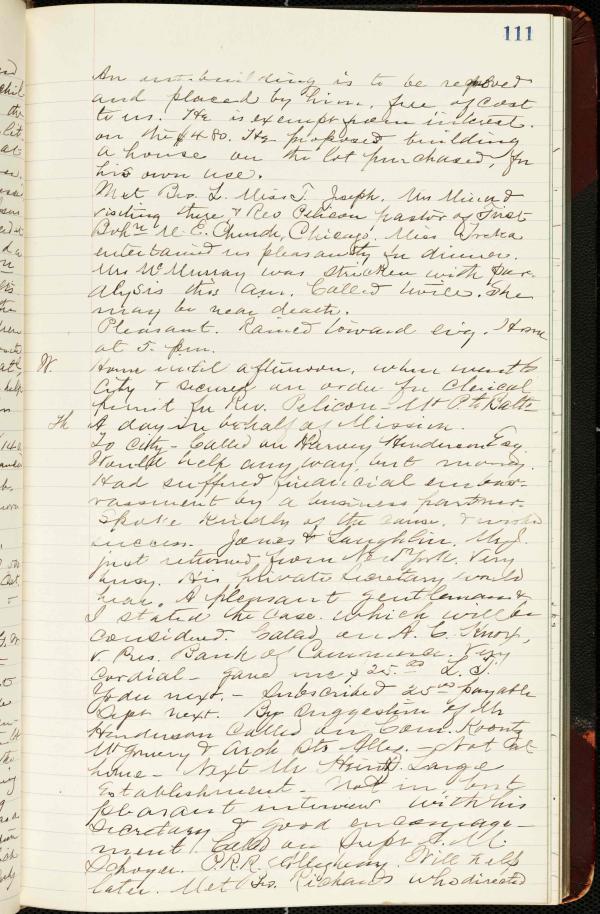 111
An out-building is to be removed
and placed by him, free of cost
to us. He is exempt from interest
on the $480. He proposed building
a house on the lot purchased, for
his own use.
Met Bro. L. Miss T. Joseph. Mrs
visiting there & Rev Pelicon pastor of First
M. E. Church, Chicago. Miss
entertained us pleasantly for dinner.
Mrs McMurray was stricken with par-
alysis this am. Called twice. She
may be near death.
Pleasant. Rained toward evg. Home
at 5. pm.
W. Home until afternoon, when went to
City & secured an order for Clerical
permit for Rev. Pelicon -
Th A day in behalf of Mission.
To City - Called on Harvey Henderson Esq.
Would help any way, but money.
Had suffered financial embar-
rassment by a business partner.
Spoke kindly of the cause, &
success. Jones & Laughlin. Mr J.
just returned from New York. Very
busy. His private Secretary would
hear. A pleasant gentleman &
I stated the case. which will be
considered. Called on A. C. Knox,
V. Pres. Bank of Commerce. Very
Cordial - gave me $25.00 L. S.
Yoder next. - Subscribed 25.00 payable
Sept next. By suggestion of Mr
Henderson Called on Com. Koontz
& Arch Sts Alleg. - Not at
home - Next Mr Heinz. Large
Establishment - Not in but
pleasant interview with his
Secretary & good encourage-
ment. Called on Supt. S. M.
Schoyer. P.R.R. Allegheny. Will help
later. Met Bro. Richards who directed